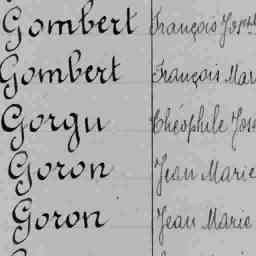 Gombert François Josph
Gombert François Mar
Gorgu Théophile Jos
Goron Jean Marie
Goron Jean Marie